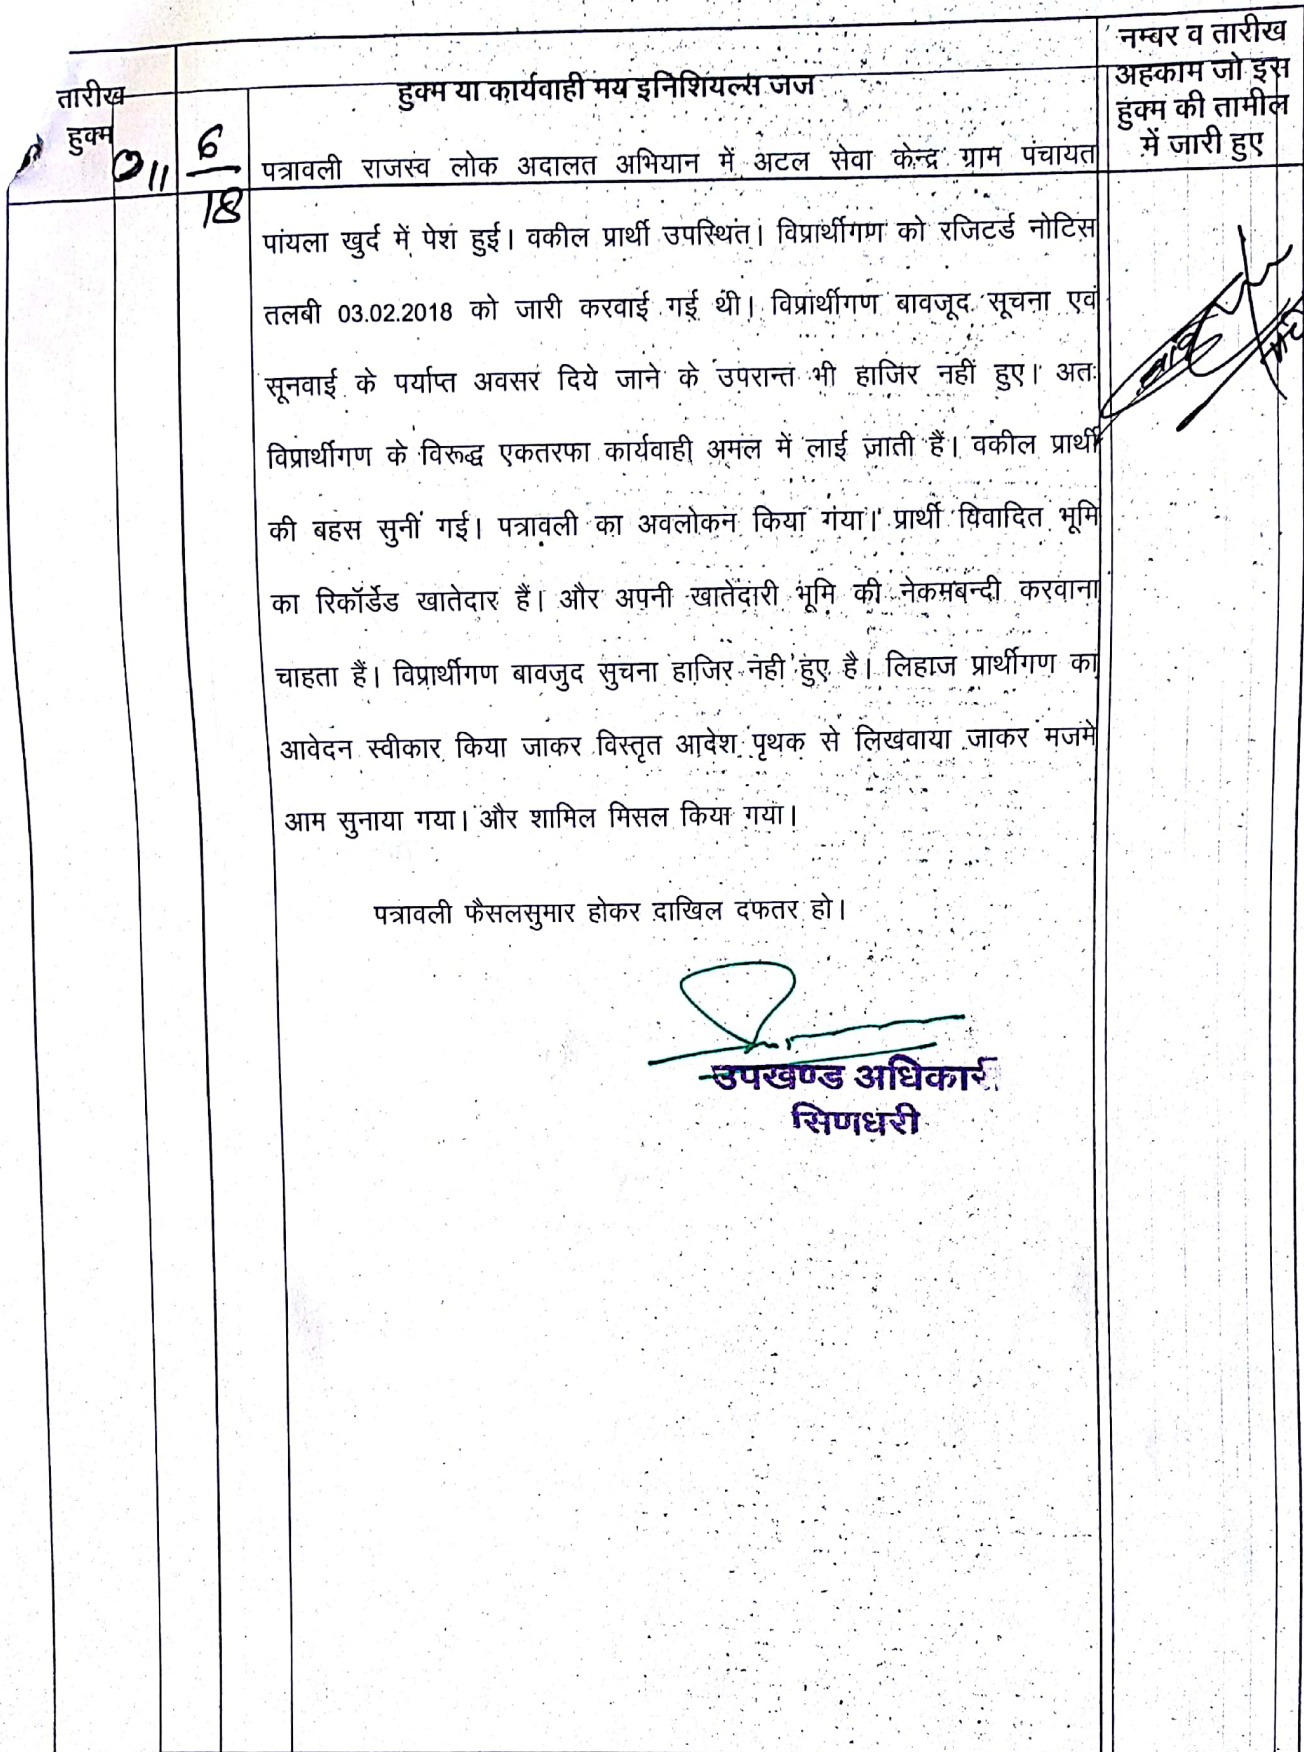 तारीख हुक्म
हुक्म या कार्यवाही मय इनिशियल्स जज
नम्बर व तारीख
अहकाम जो इस
हुक्म की तामील
में जारी हुए
11 6/18
पत्रावली राजस्व लोक अदालत अभियान में अटल सेवा केन्द्र ग्राम पंचायत
पांयला खुर्द में पेश हुई। वकील प्रार्थी उपस्थित। विप्रार्थीगण को रजिटर्ड नोटिस
तलबी 03.02.2018 को जारी करवाई गई थी। विप्रार्थीगण बावजूद सूचना एवं
सूनवाई के पर्याप्त अवसर दिये जाने के उपरान्त भी हाजिर नहीं हुए। अतः
विप्रार्थीगण के विरूद्ध एकतरफा कार्यवाही अमल में लाई जाती हैं। वकील प्रार्थी
की बहस सुनीं गई। पत्रावली का अवलोकन किया गया। प्रार्थी विवादित भूमि
का रिकॉर्डेड खातेदार हैं। और अपनी खातेदारी भूमि की नेकमबन्दी करवाना
चाहता हैं। विप्रार्थीगण बावजुद सुचना हाजिर नही हुए है। लिहाज प्रार्थीगण का
आवेदन स्वीकार किया जाकर विस्तृत आदेश पृथक से लिखवाया जाकर मजमे
आम सुनाया गया। और शामिल मिसल किया गया।
पत्रावली फैसलसुमार होकर दाखिल दफतर हो।
उपखण्ड अधिकारी
सिणधरी